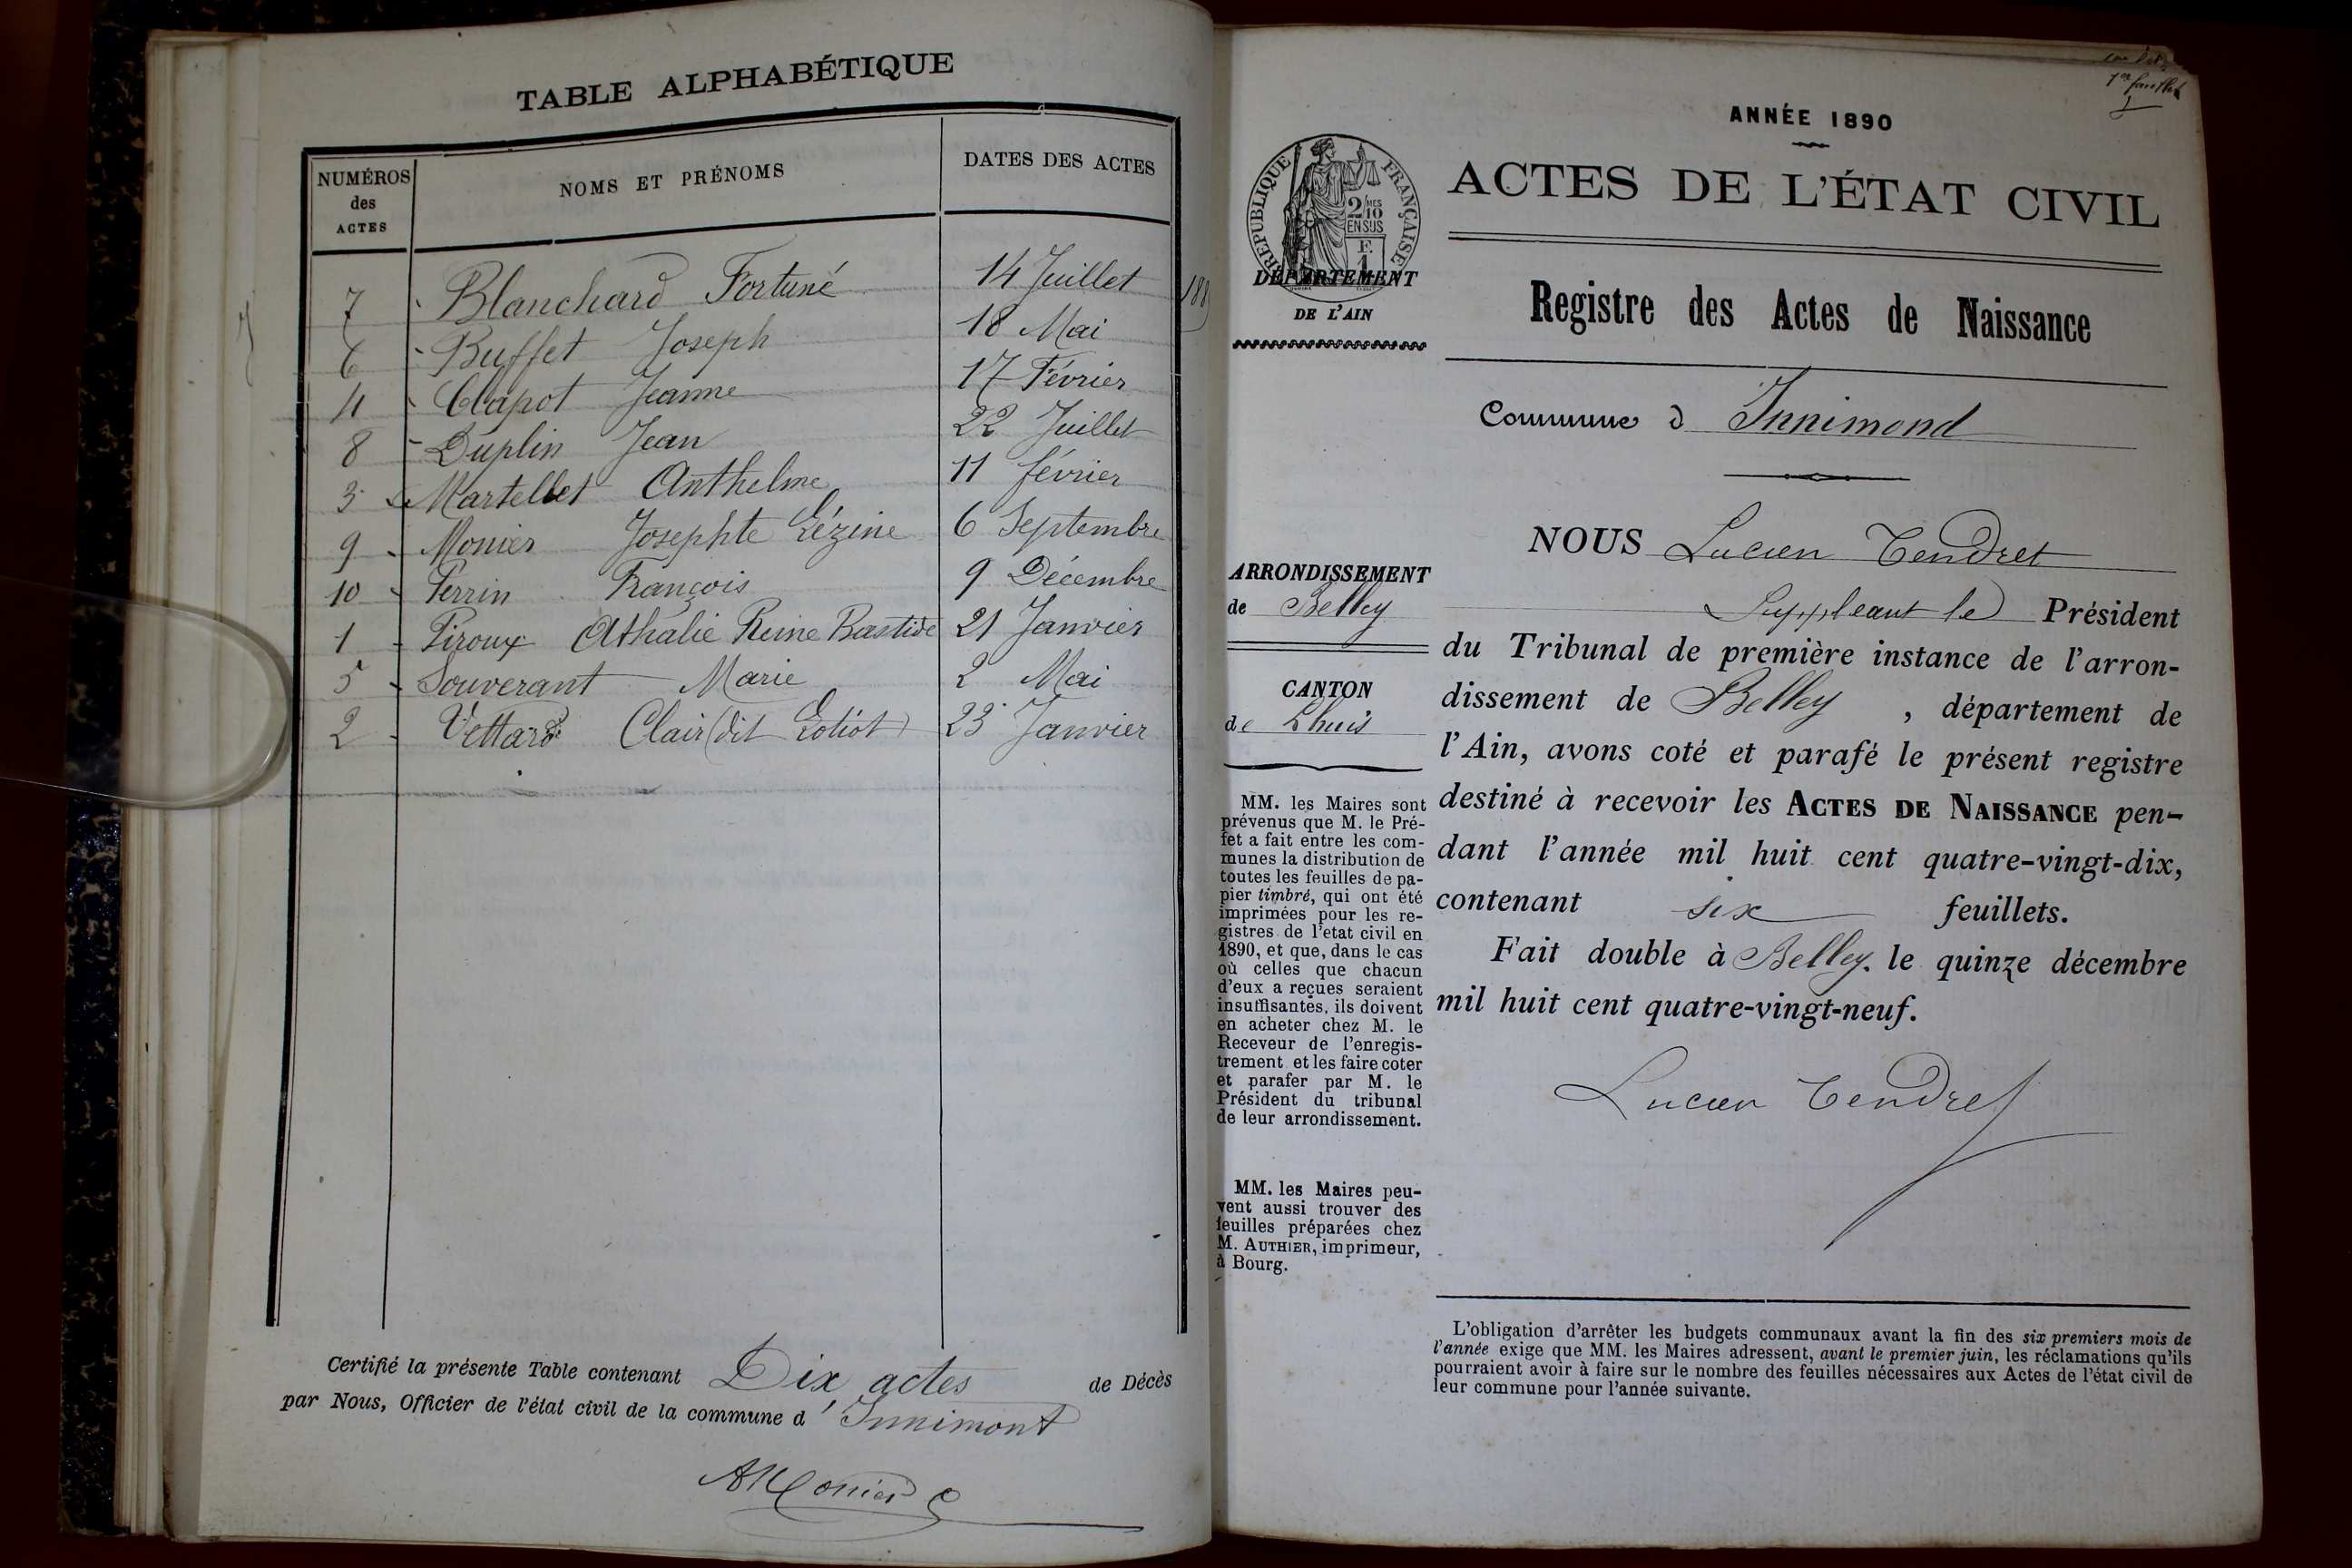 TABLE ALPHABÉTIQUE
NUMÉROS des ACTES NOMS ET PRÉNOMS DATES DES ACTES
7 Blanchard Fortuné 14 Juillet 188
6 Buffet Joseph 18 Mai
4 Clapot Jeanne 17 Février
8 Duplin Jean 22 Juillet
3 Martellet Anthelme 11 février
9 Monier Josephte Lézine 6 Septembre
10 Perrin François 9 Décembre
1 Piroux Athalie Reine Bastide 21 Janvier
5 Souverant Marie 2 Mai
2 Vettard Clair (dit Loliot) 23 Janvier
Certifié la présente Table contenant Dix actes de Décès
par Nous, Officier de l'état civil de la commune d'Innimont
AMonier
1er feuillet
ANNÉE 1890
ACTES DE L'ÉTAT CIVIL
RÉPUBLIQUE FRANÇAISE
2/10MES
EN SUS
F.
1
DÉPARTEMENT
DE L'AIN
Registre des Actes de Naissance
Commune d Innimond
ARRONDISSEMENT
de Belley
CANTON
de Lhuis
MM. les Maires sont
prévenus que M. le Pré-
fet a fait entre les com-
munes la distribution de
toutes les feuilles de pa-
pier timbré, qui ont été
imprimées pour les re-
gistres de l'etat civil en
1890, et que, dans le cas
où celles que chacun
d'eux a reçues seraient
insuffisantes, ils doivent
en acheter chez M. le
Receveur de l'enregis-
trement et les faire coter
et parafer par M. le
Président du tribunal
de leur arrondissement.
MM. les Maires peu-
vent aussi trouver des
feuilles préparées chez
M. AUTHIER, imprimeur,
à Bourg.
NOUS Lucien Tendret
Suppléant le Président
du Tribunal de première instance de l'arron-
dissement de Belley, département de
l'Ain, avons coté et parafé le présent registre
destiné à recevoir les ACTES DE NAISSANCE pen-
dant l'année mil huit cent quatre-vingt-dix,
contenant six feuillets.
Fait double à Belley. le quinze décembre
mil huit cent quatre-vingt-neuf.
Lucien Tendret
L'obligation d'arrêter les budgets communaux avant la fin des six premiers mois de
l'année exige que MM. les Maires adressent, avant le premier juin, les réclamations qu'ils
pourraient avoir à faire sur le nombre des feuilles nécessaires aux Actes de l'état civil de
leur commune pour l'année suivante.